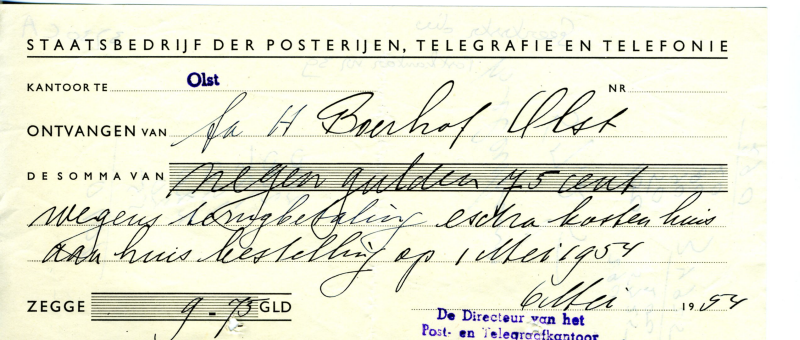 STAATSBEDRIJF DER POSTERIJEN, TELEGRAFIE EN TELEFONIE
KANTOOR TE Olst NR
ONTVANGEN VAN fa H Boerhof Olst
DE SOMMA VAN negen gulden 75 cent
wegens terugbetaling extra kosten huis
aan huis bestelling op 1 Mei 1954
ZEGGE 9-75 GLD 6 Mei 1954
De Directeur van het
Post- en Telegraafkantoor